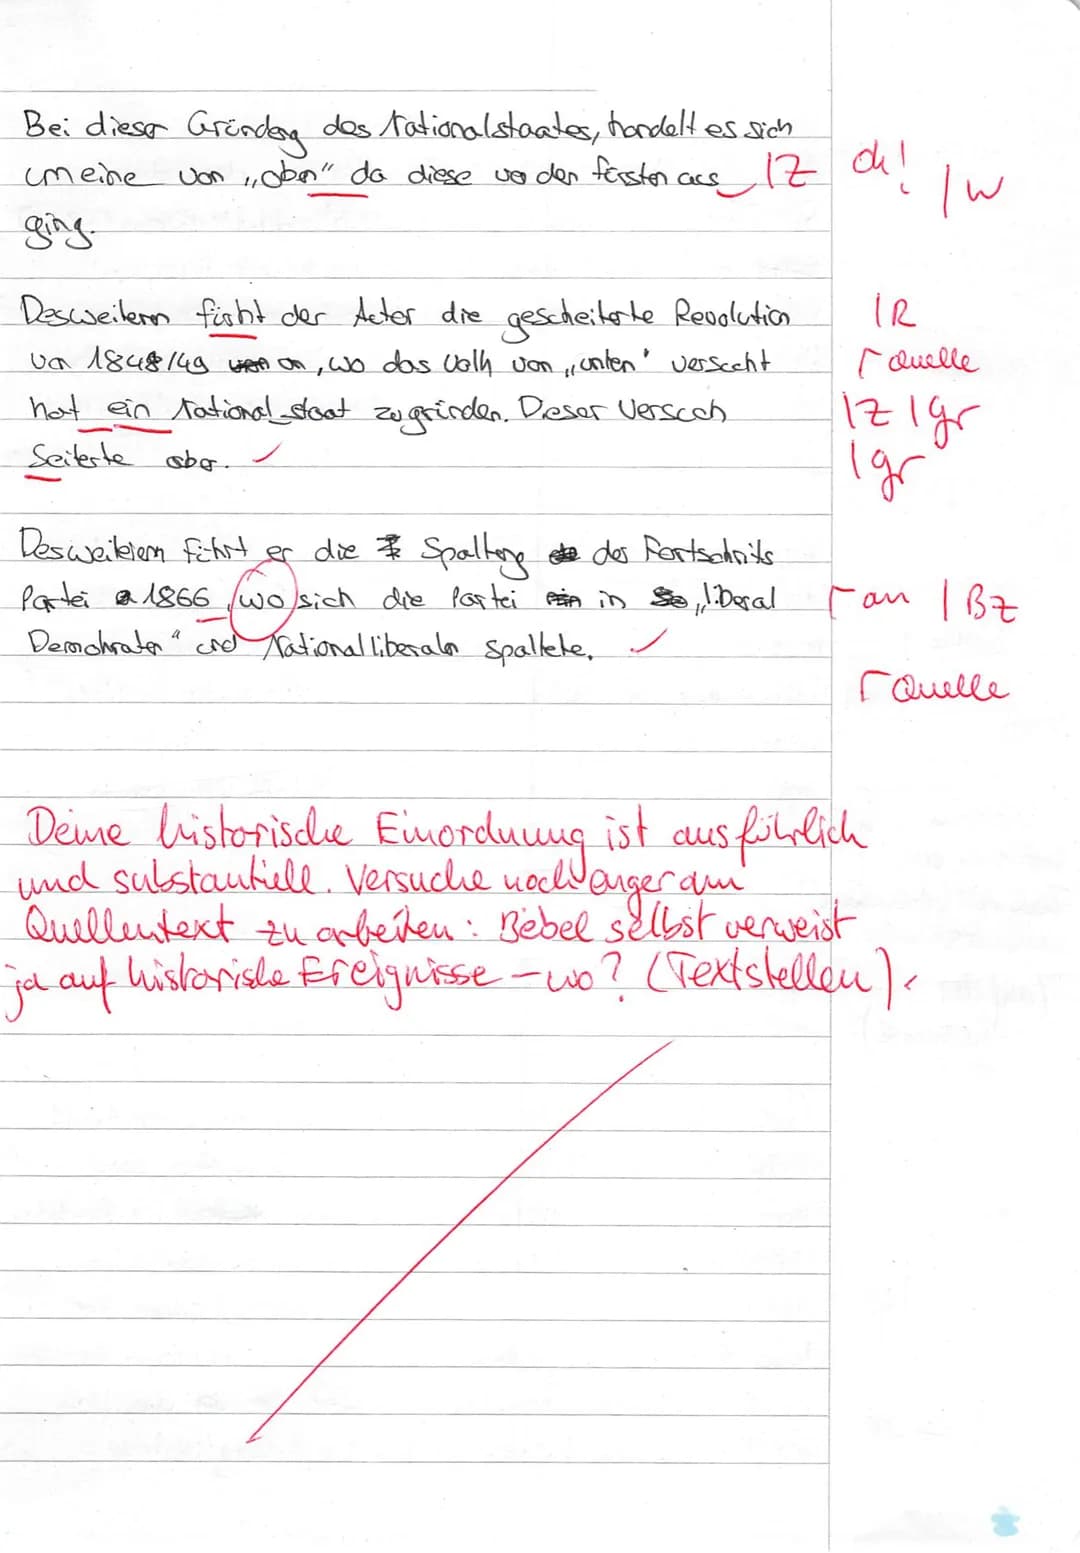 Bei dieser Gründung des Nationalstaates, handelt es sich
um eine von „oben" da diese von den Fürsten aus IZ ok! IW
ging.
Desweiteren füght der Autor die gescheiterte Revolution IR
von 1848/49 an, wo das Volk von „unten" versucht Γ Quelle
hat ein Nationalstaat zu gründen. Dieser Versuch IZ Igr
Seiterte aber. ✓ Igr
Desweiteren führt er die Spaltung der Fortschrits
Partei 1866, wo sich die Partei in „liberal Γ an I Bz
Demokraten" und Nationalliberalen spaltete. ✓
Γ Quelle
Deine historische Einordnung ist ausführlich
und substantiell. Versuche noch enger am
Quellentext zu arbeiten: Bebel selbst verweist
ja auf historische Ereignisse – wo? (Textstellen).